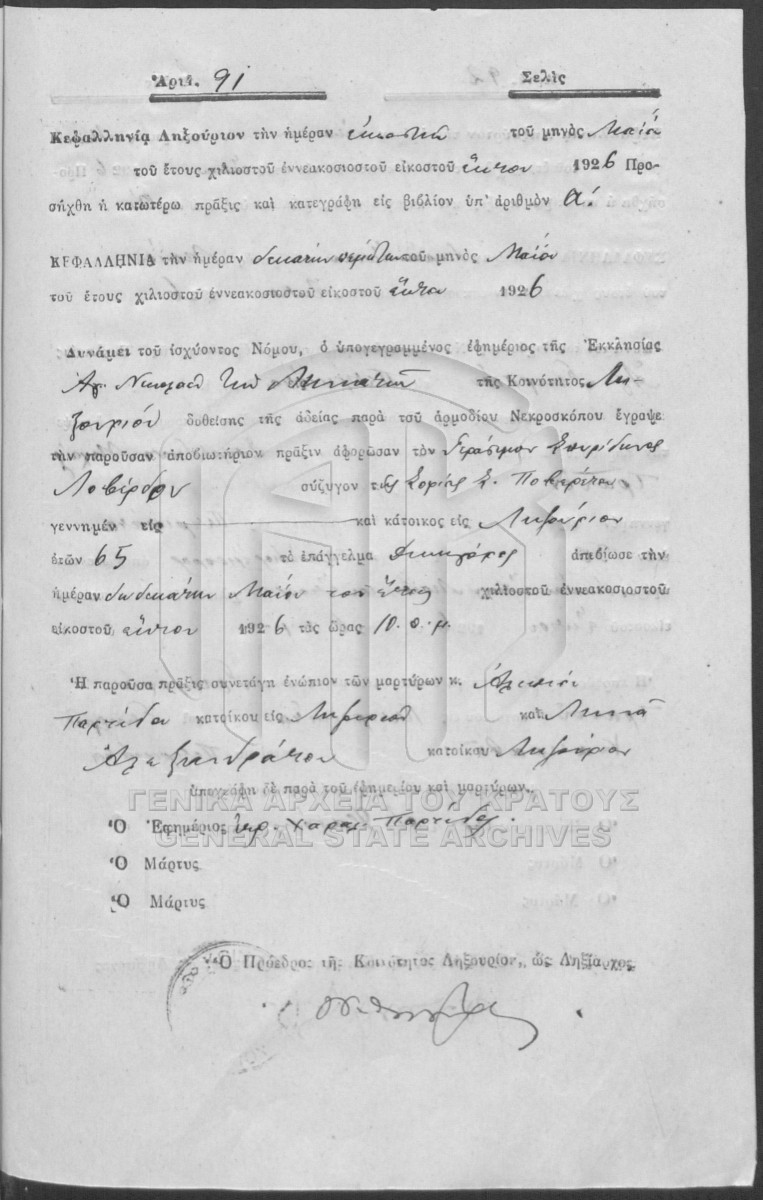 Ἀριθ. 91 Σελὶς
Κεφαλληνία Ληξούριον τὴν ἡμέραν εἰκοστὴν τοῦ μηνὸς Μαΐου
τοῦ ἔτους χιλιοστοῦ ἐννεακοσιοστοῦ εἰκοστοῦ ἕκτου 1926 Προ-
σήχθη ἡ κατωτέρω πρᾶξις καὶ κατεγράφη εἰς βιβλίον ὑπ' ἀριθμὸν α΄.
ΚΕΦΑΛΛΗΝΙΑ τὴν ἡμέραν δεκάτην πέμπτην τοῦ μηνὸς Μαΐου
τοῦ ἔτους χιλιοστοῦ ἐννεακοσιοστοῦ εἰκοστοῦ ἕκτου 1926
Δυνάμει τοῦ ἰσχύοντος Νόμου, ὁ ὑπογεγραμμένος ἐφημέριος τῆς Ἐκκλησίας
Ἁγ. Νικολάου τῶν Μηνιατῶν τῆς Κοινότητος Λη-
ξουρίου δοθείσης τῆς ἀδείας παρὰ τοῦ ἁρμοδίου Νεκροσκόπου ἔγραψε
τὴν παροῦσαν ἀποβιωτήριον πρᾶξιν ἀφορῶσαν τὸν Γεράσιμον Σπυρίδωνος
Λοβέρδον σύζυγον τῆς Σοφίας Σ.
γεννημέν εἰς καὶ κάτοικος εἰς Ληξούριον
ἐτῶν 65 τὸ ἐπάγγελμα Δικηγόρος ἀπεβίωσε τὴν
ἡμέραν δωδεκάτην Μαΐου τοῦ ἔτους χιλιοστοῦ ἐννεακοσιοστοῦ
εἰκοστοῦ ἕκτου 1926 τὰς ὥρας 10. π. μ.
Ἡ παροῦσα πρᾶξις συνετάγη ἐνώπιον τῶν μαρτύρων κ.
Παρτίδα κατοίκου εἰς Ληξούριον καὶ Μηνᾶ
Ἀλεξανδράτου κατοίκου Ληξούριον
ὑπογράφη δὲ παρὰ τοῦ ἐφημερίου καὶ μαρτύρων.
ΓΕΝΙΚΑ ΑΡΧΕΙΑ ΤΟΥ ΚΡΑΤΟΥΣ
Ὁ Ἐφημέριος ἱερ. Χαραλ. Παρτίδας.
GENERAL STATE ARCHIVES
Ὁ Μάρτυς
Ὁ Μάρτυς
Ὁ Πρόεδρος τῆς Κοινότητος Ληξουρίου, ὡς Ληξίαρχος